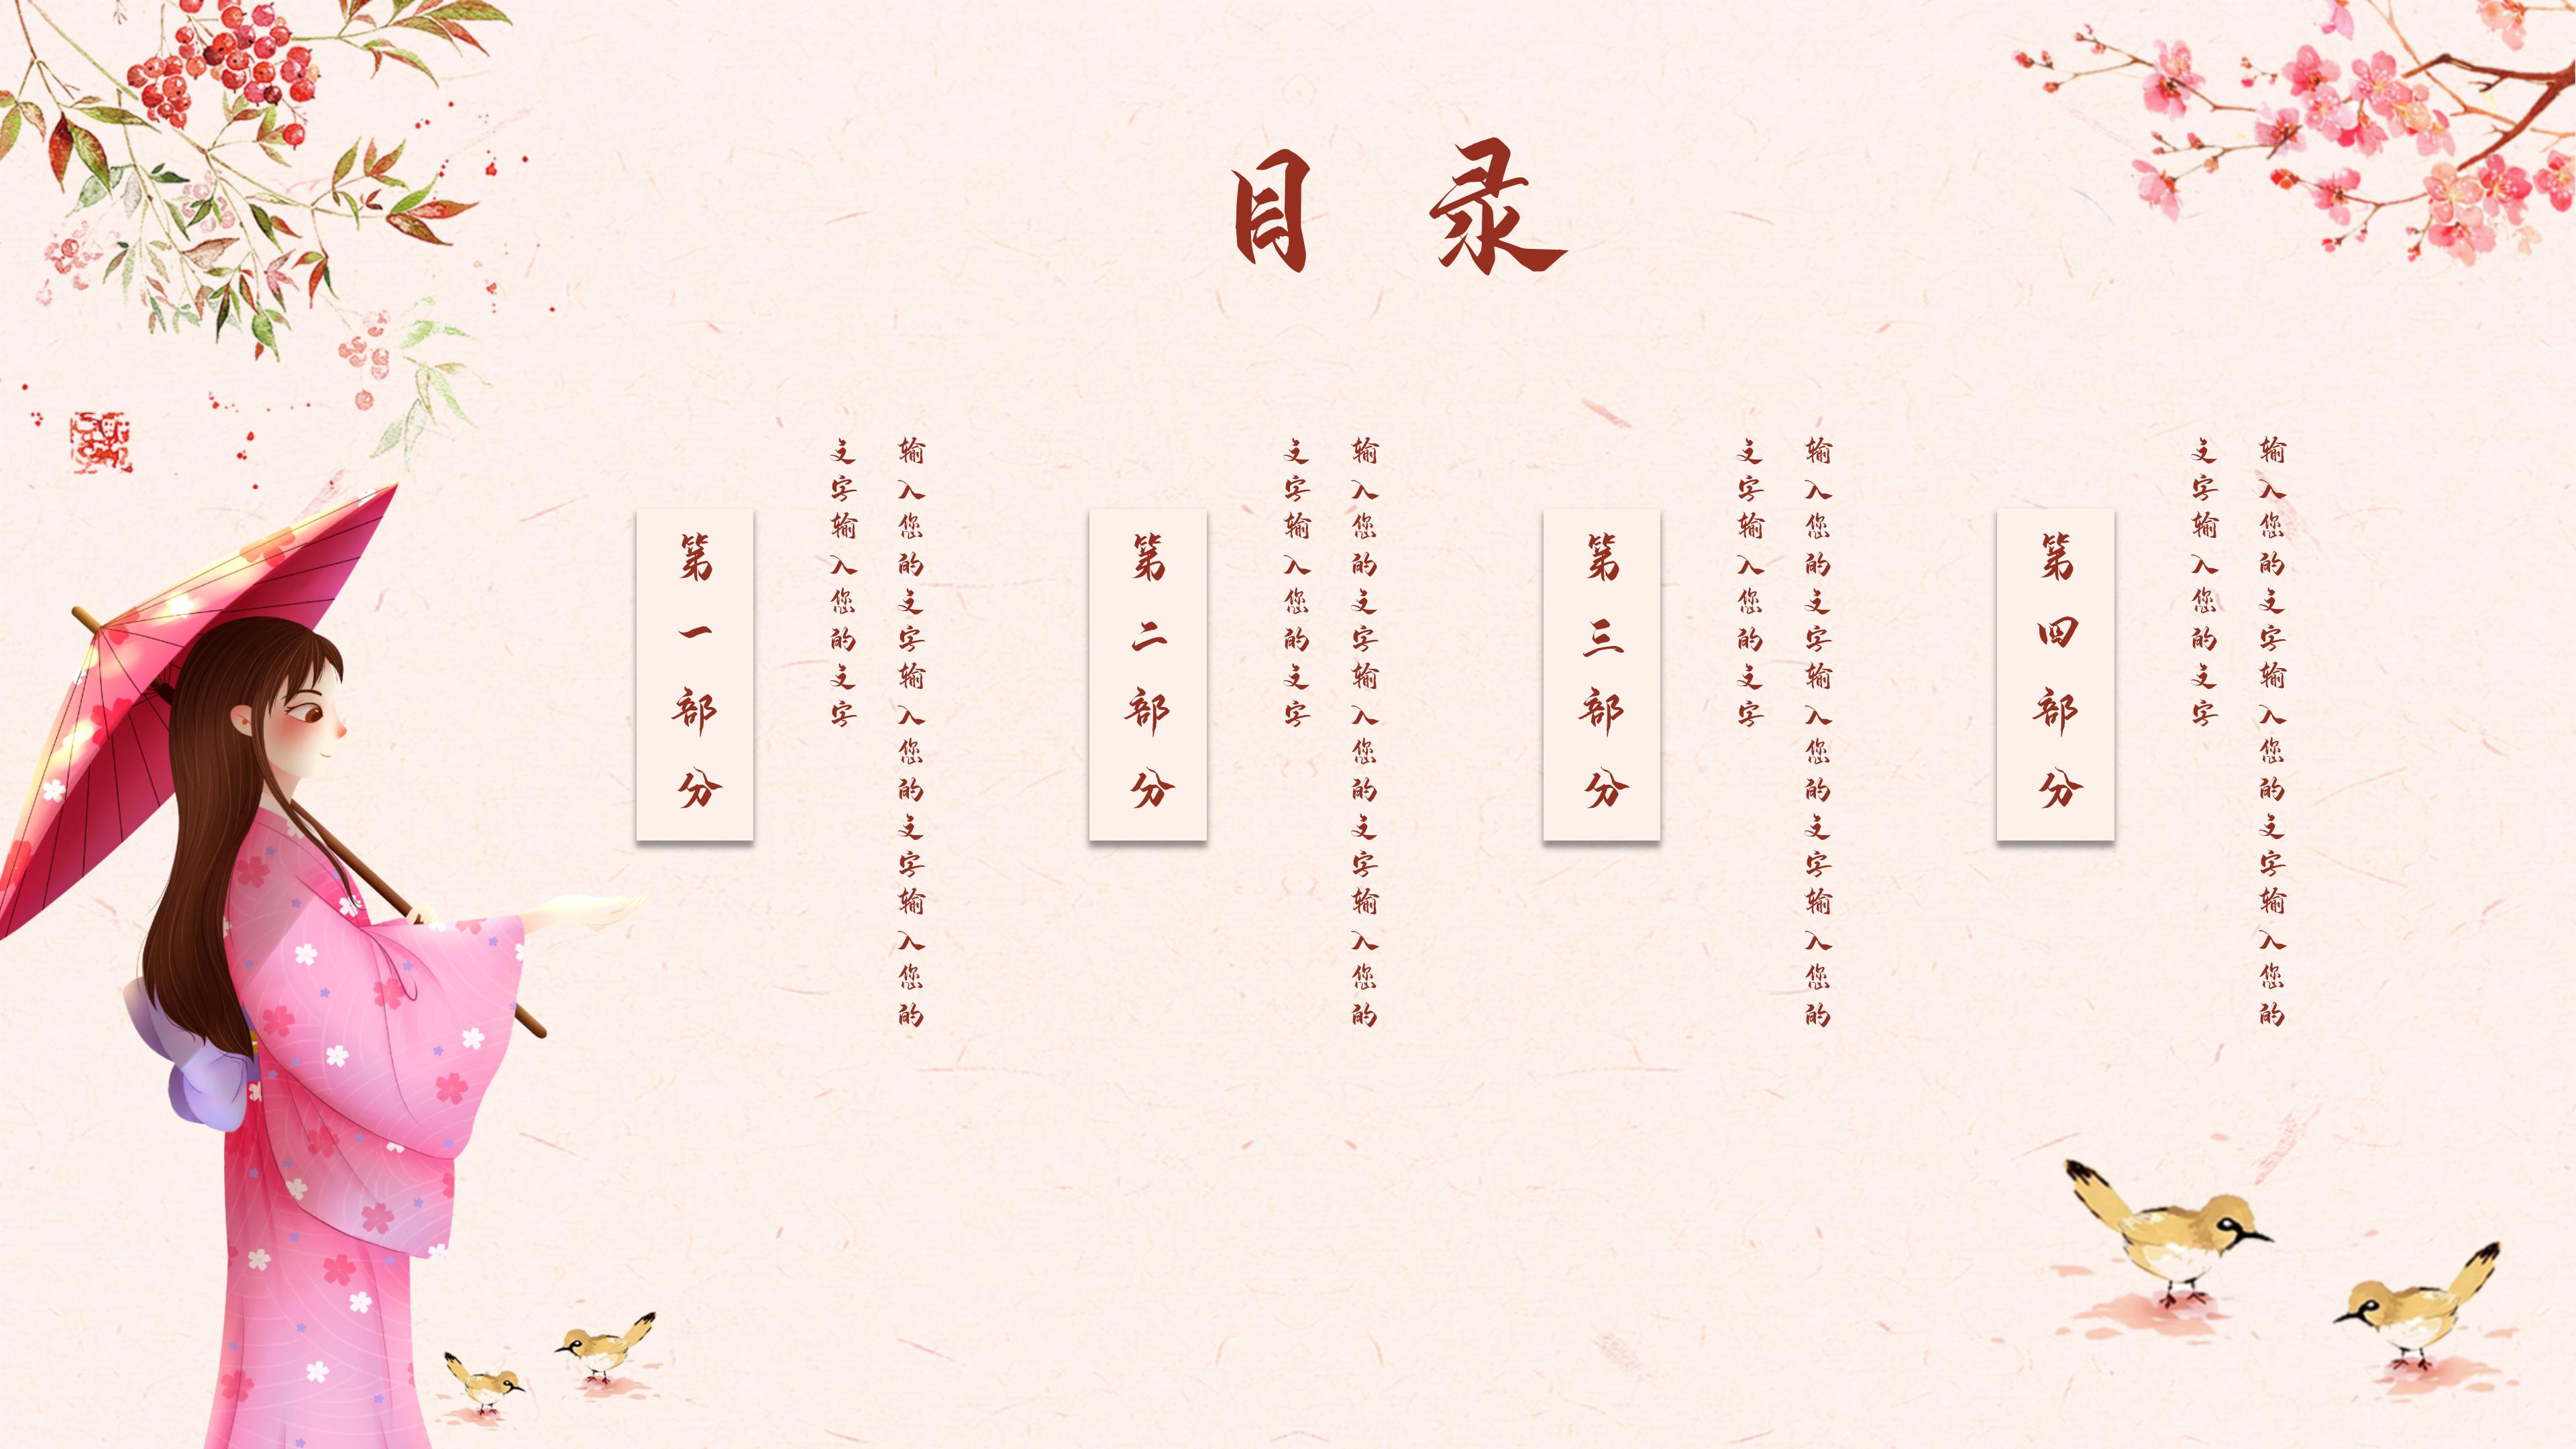 目录
第一部分
输入您的文字输入您的文字输入您的
文字输入您的文字
第二部分
输入您的文字输入您的文字输入您的
文字输入您的文字
第三部分
输入您的文字输入您的文字输入您的
文字输入您的文字
第四部分
输入您的文字输入您的文字输入您的
文字输入您的文字